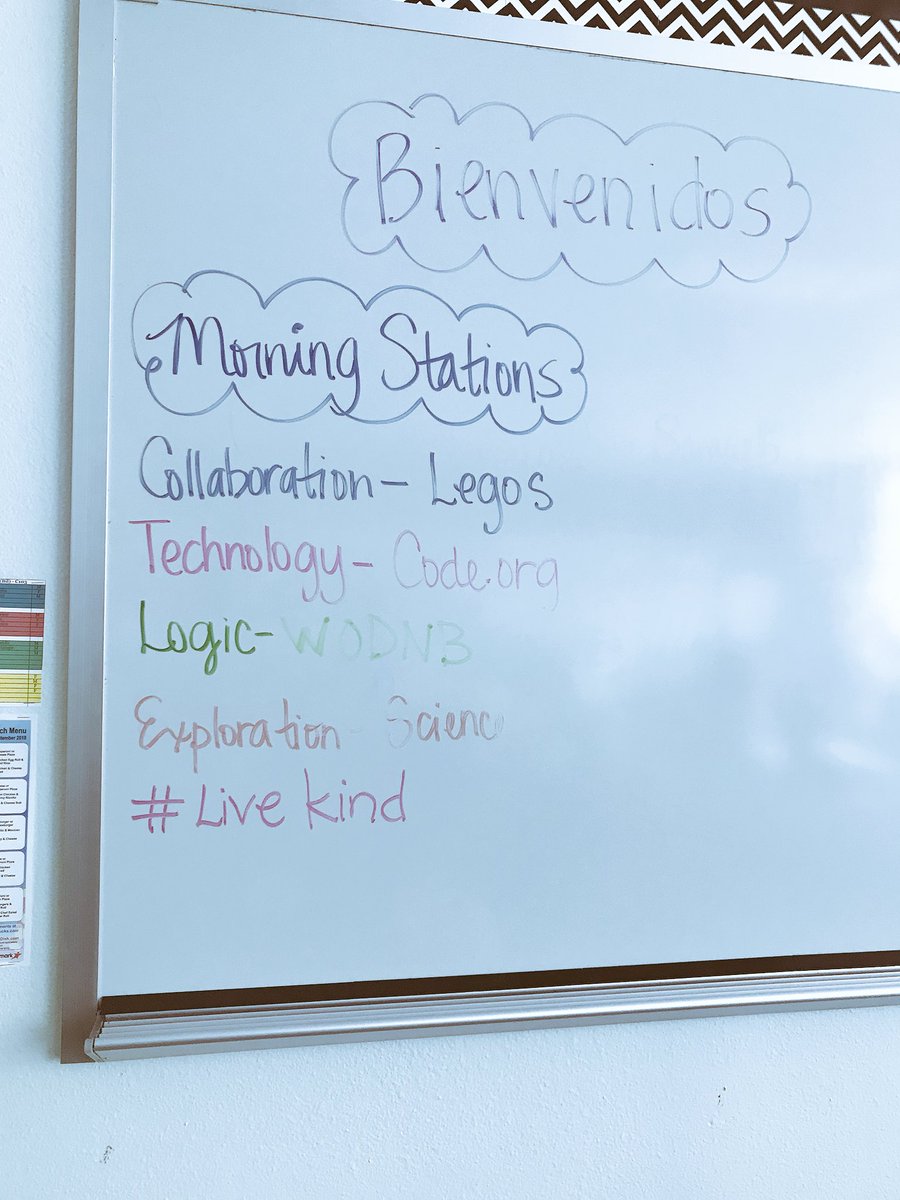 Bienvenidos
Morning Stations
Collaboration - Legos
Technology - Code.org
Logic - WODN3
Exploration - Science
#Live kind
ch Menu